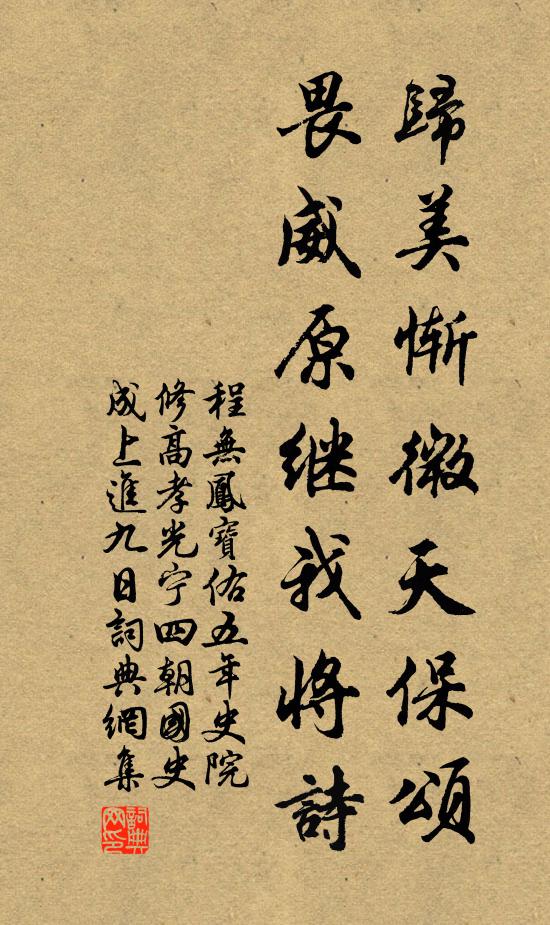 歸美慚微天保頌
畏威原继我將詩
程無鳳寶佑五年史院
修高孝光宁四朝國史
成上進九日詞典網集
詞典网印